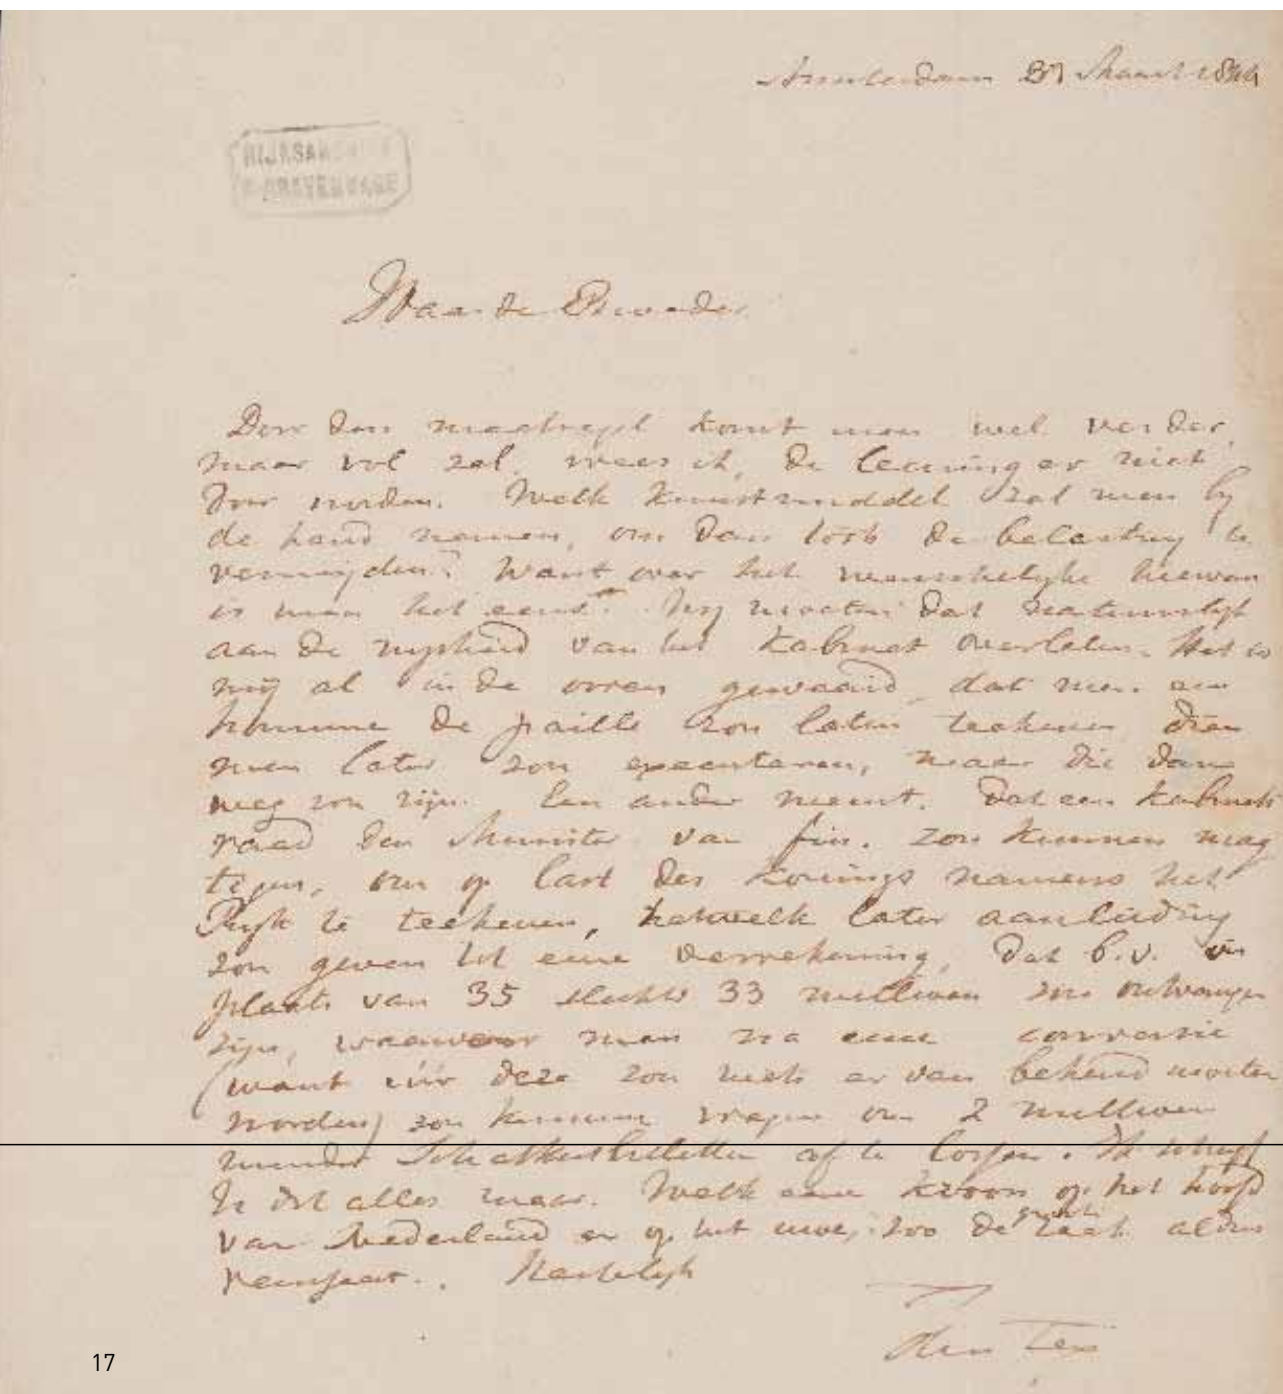 Amsterdam 27 Maart 1844
RIJKSAR
'S GRAVENHAGE
Waarde Broeder
Door den maatregel komt men wel verder,
maar vol zal, vrees ik, de leening er niet
door worden. Welk kunstmiddel zal men by
de hand nemen, om dan toch de belasting te
vermyden? Want over het menschelyke hiervan
is men het eens. Wy moeten dat natuurlyk
aan de wysheid van het Kabinet overlaten. Het is
mij al in de ooren gewaaid, dat men een
homme de paille zou laten teekenen dien
men later zou executeren, maar die dan
weg zou zijn. Een ander meent, dat een Kabinets
raad den Minister van fin. zou kunnen mag
tigen, om op last des Konings namens het
Ryk te teekenen, hetwelk later aanleiding
zou geven tot eene verrekening, dat b.v. in
plaats van 35 slechts 33 millioen zou ontvangen
zijn, waarvoor men na eene conversie
(want vóór deze zou niets er van bekend moeten
worden) zou kunnen vragen om 2 millioen
minder Schatkistbiletten af te lossen. Ik schryf
U dit alles maar. Welk eene kroon op het hoofd
van Nederland en op het uwe, zoo de groote zaak aldus
reusseert. Hartelyk
den Tex
17